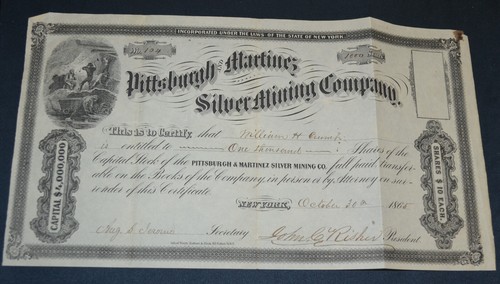 INCORPORATED UNDER THE LAWS OF THE STATE OF NEW YORK.
No. 104
1000 Shares
Pittsburgh AND Martinez
Silver Mining Company.
This is to Certify that William H.
is entitled to One thousand Shares of the
Capital Stock of the PITTSBURGH & MARTINEZ SILVER MINING CO. full paid, transfer-
able on the Books of the Company, in person or by Attorney on sur-
render of this Certificate.
NEW YORK, October 30th 1865
Secretary John C. Risher President
CAPITAL $4,000,000
SHARES $10 EACH.